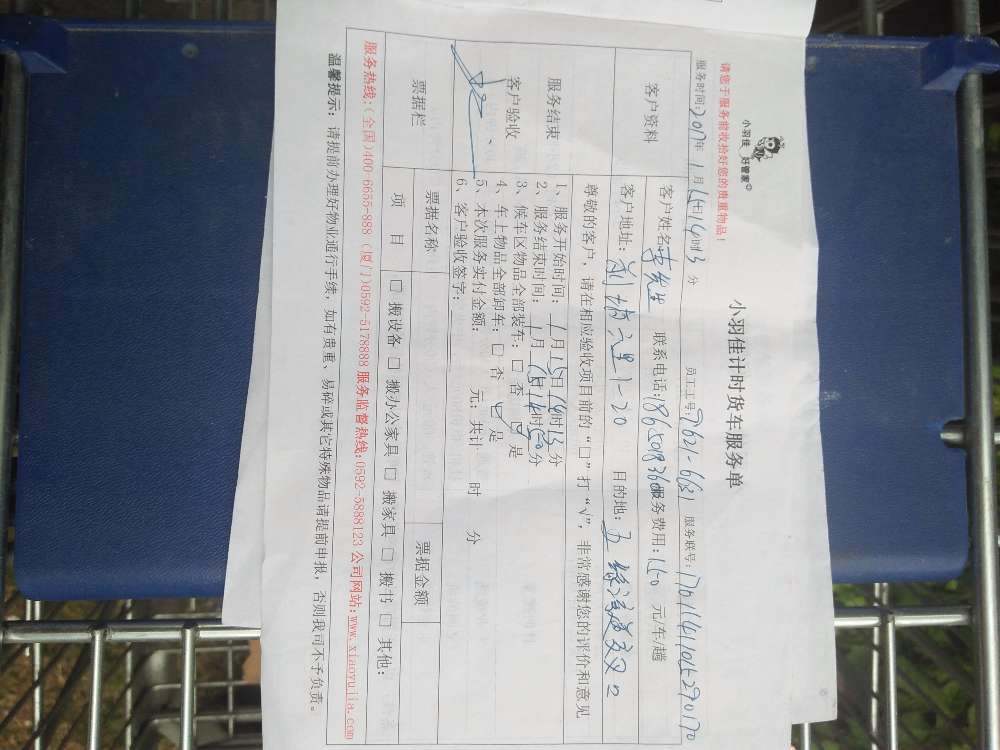 小羽佳 好管家
小羽佳计时货车服务单
请您于服务前收拾好您的贵重物品！
服务时间:2017年1月15日14时13分 员工工号 服务联号:
客户资料
客户姓名:李先生 联系电话: 服务费用:150 元/车/趟
客户地址: 目的地:
尊敬的客户，请在相应验收项目前的“□”打“√”，非常感谢您的评价和意见
服务结束
客户验收
1、服务开始时间：1月15日14时13分
2、服务结束时间：1月15日14时50分
3、候车区物品全部装车：□ 否 是
4、车上物品全部卸车：□ 否 是
5、本次服务实付金额： 元;共计 时 分
6、客户验收签字:
票据栏
票据名称 票据金额
项 目 □ 搬设备 □ 搬办公家具 □ 搬家具 □ 搬书 □ 其他:
服务热线:(全国)400-6655-888 (厦门)0592-5178888 服务监督热线:0592-5888123 公司网站:www.xiaoyujia.com
温馨提示：请提前办理好物业通行手续，如有贵重、易碎或其它特殊物品请提前申报，否则我司不予负责。